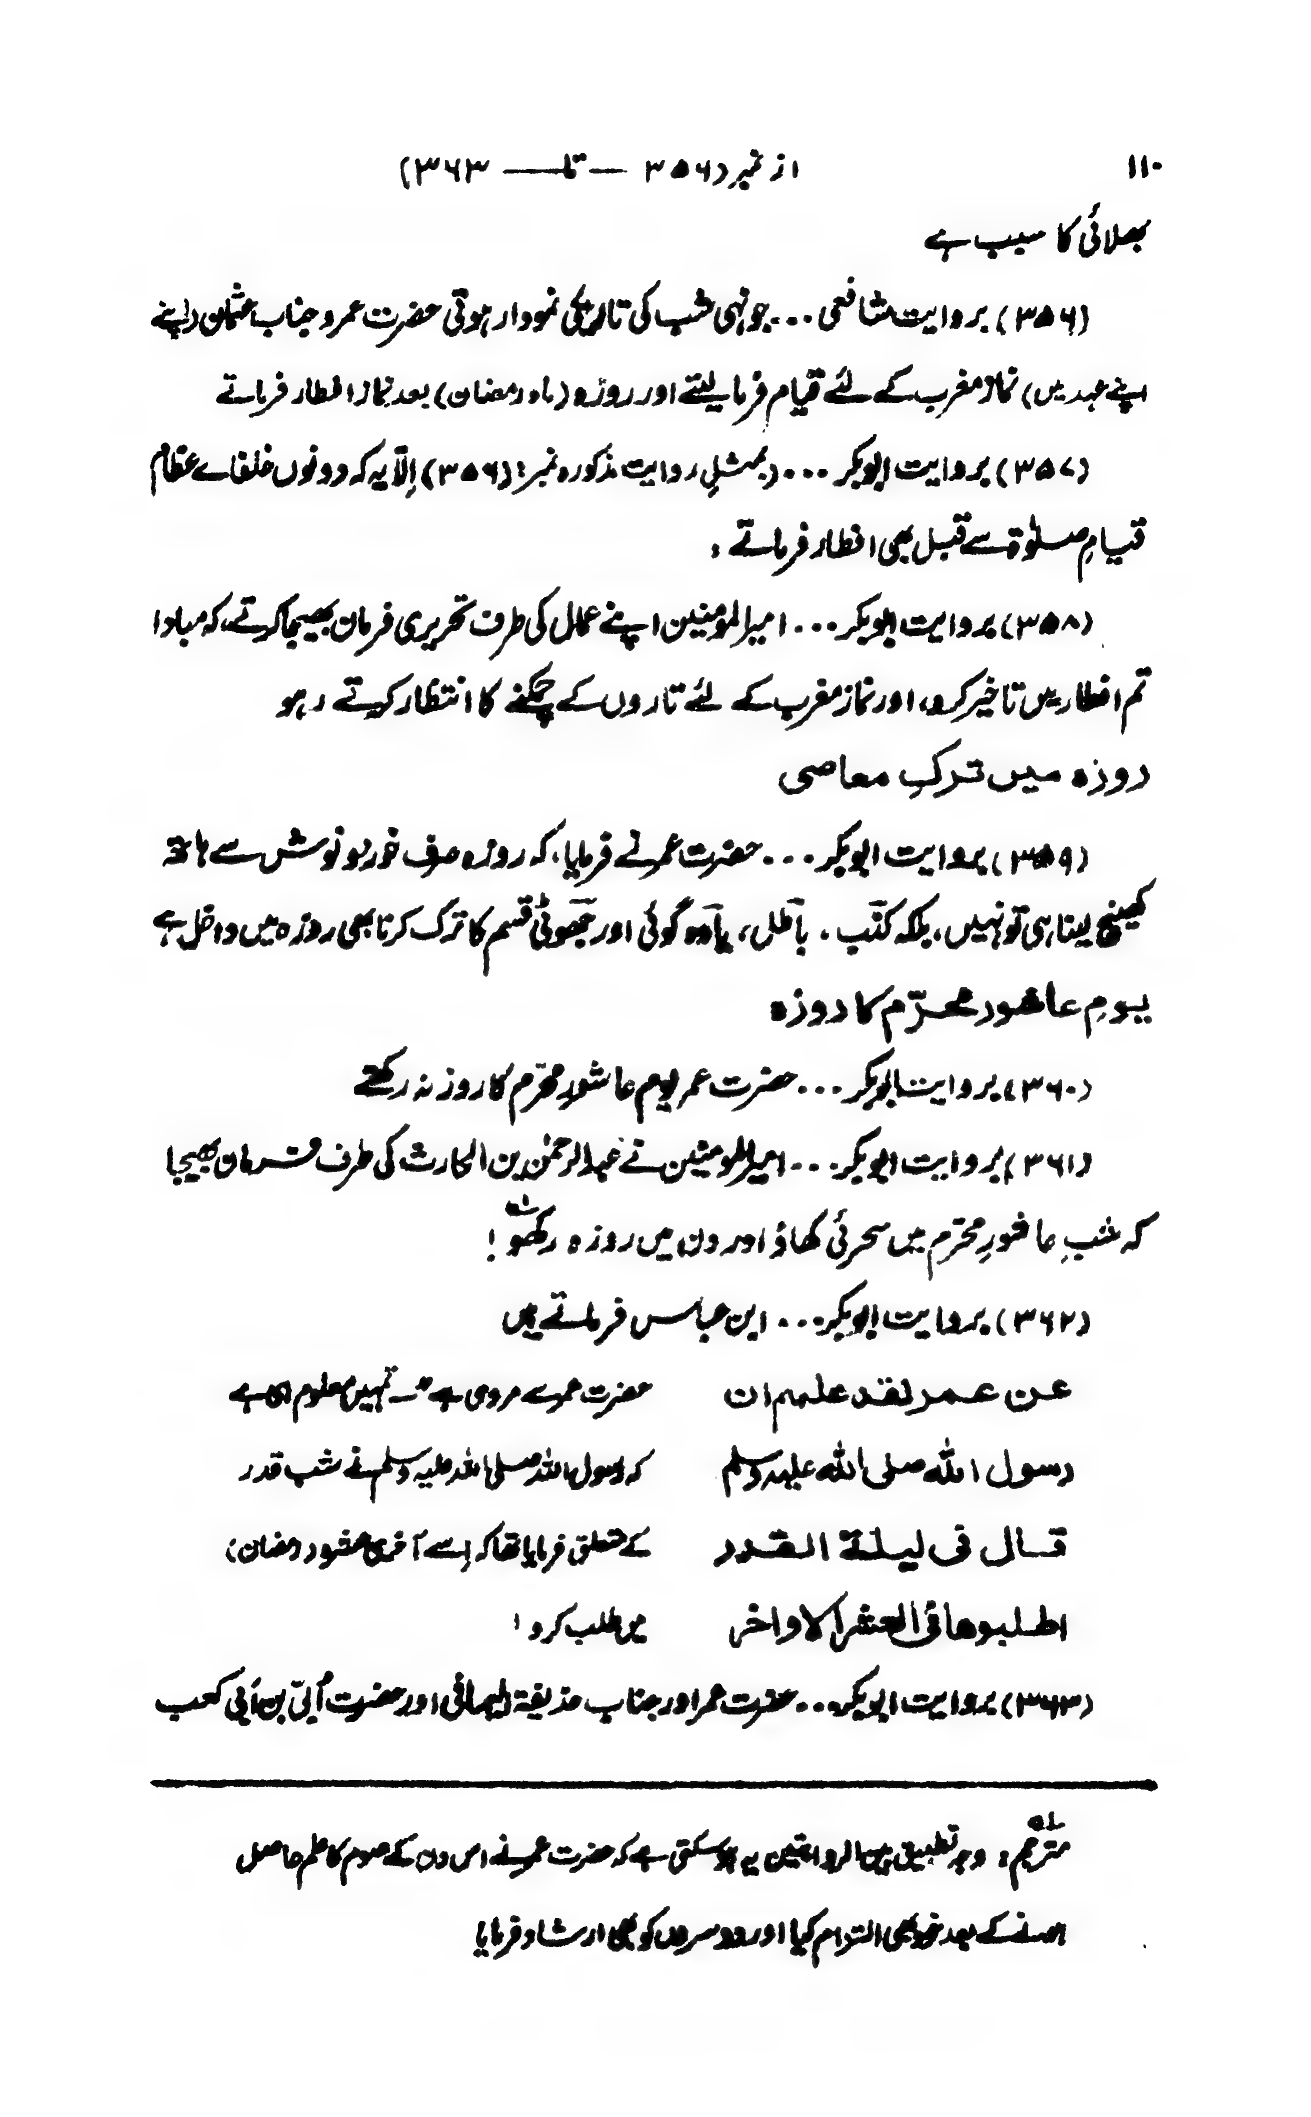 ۱۱۰ از نمبر (۳۵۶ — تا — ۳۶۳)
بھلائی کا سبب ہے
(۳۵۶) بروایت شافعی ... جونہی شب کی تاریکی نمودار ہوتی حضرت عمر و جناب عثمان (اپنے
اپنے عہد میں) نماز مغرب کے لئے قیام فرما لیتے اور روزہ (ماہ رمضان) بعد نماز افطار فرماتے
(۳۵۷) بروایت ابوبکر ... (بمثلِ روایت مذکورہ نمبر: (۳۵۶) اِلّا یہ کہ دونوں خلفاے عظام
قیامِ صلوٰۃ سے قبل بھی افطار فرماتے :
(۳۵۸) بروایت ابوبکر ... امیر المومنین اپنے عمال کی طرف تحریری فرمان بھیجا کرتے، کہ مبادا
تم افطار میں تاخیر کرو، اور نماز مغرب کے لئے تاروں کے چمکنے کا انتظار کرتے رہو
روزہ میں ترکِ معاصی
(۳۵۹) بروایت ابوبکر ... حضرت عمر نے فرمایا، کہ روزہ صرف خورد و نوش سے ہاتھ
کھینچ لینا ہی تو نہیں، بلکہ کذب . باطل، یاوہ گوئی اور جھوٹی قسم کا ترک کرنا بھی روزہ میں داخل ہے
یومِ عاشور محرّم کا روزہ
(۳۶۰) بروایت ابوبکر ... حضرت عمر یوم عاشورِ محرّم کا روزہ نہ رکھتے
(۳۶۱) بروایت ابوبکر ... امیر المومنین نے عبد الرحمٰن بن الحارث کی طرف فرمان بھیجا
کہ شبِ عاشورِ محرّم میں سحری کھاؤ اور دن میں روزہ رکھو !
(۳۶۲) بروایت ابوبکر ... ابن عباس فرماتے ہیں
عن عمر لقد علمتم ان حضرت عمر سے مروی ہے — تمہیں معلوم ہی ہے
رسول اللّٰہ صلی اللّٰہ علیہ وسلم کہ رسول اللہ صلی اللہ علیہ وسلم نے شب قدر
قال فی لیلۃ القدر کے متعلق فرمایا تھا کہ اِسے آخری عشور (رمضان)
اطلبوھا فی العشر الاواخر میں طلب کرو !
(۳۶۳) بروایت ابوبکر ... حضرت عمر اور جناب حذیفۃ الیمانی اور حضرت اُبیّ بن اَبی کعب
مترجم : وجہ تطبیق بین الروایتین یہ ہو سکتی ہے کہ حضرت عمر نے اس دن کے صوم کا علم حاصل
ہونے کے بعد خود بھی التزام کیا اور دوسروں کو بھی ارشاد فرمایا